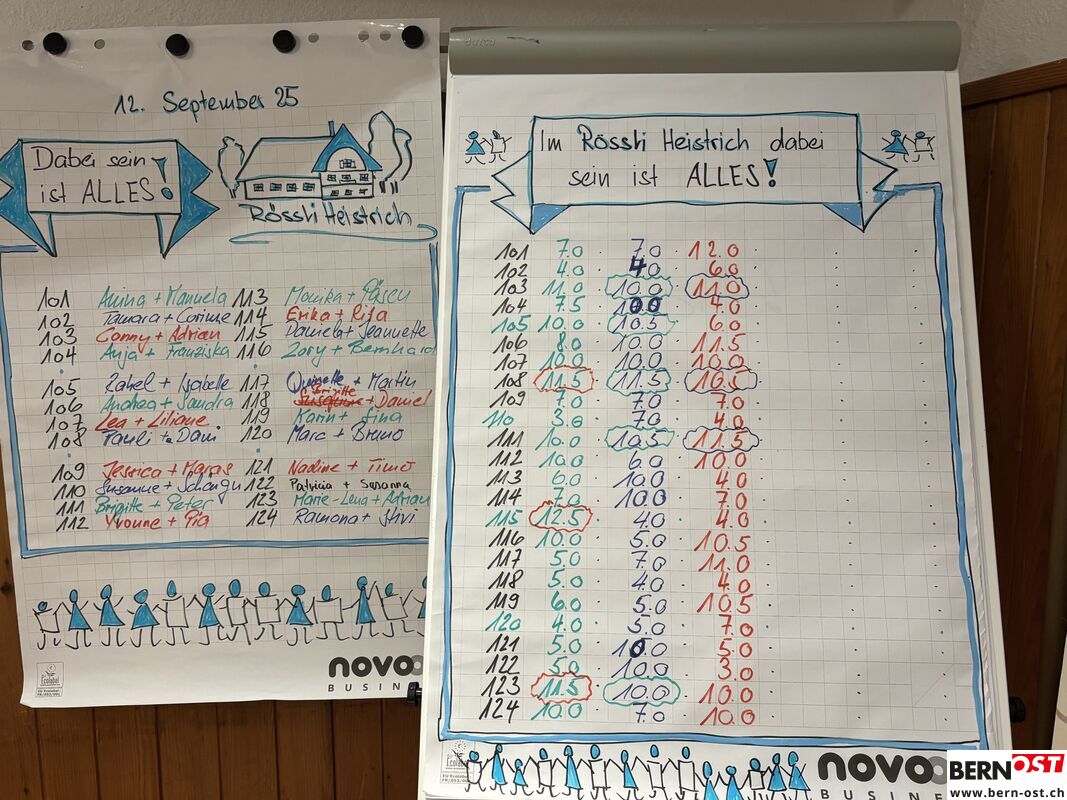 12. September 25
Dabei sein
ist ALLES!
Rössli Heistrich
101 Anina + Manuela 113 Monika + Päscu
102 Tamara + Corinne 114 Erika + Rita
103 Conny + Adrian 115 Daniela + Jeannette
104 Anja + Franziska 116 Zory + Bernhard
105 Rahel + Isabelle 117 + Martin
106 Andrea + Sandra 118 Brigitte + Daniel
107 Lea + Liliane 119 Karin + Sina
108 Pauli + Dani 120 Marc + Bruno
109 Jessica + 121 Nadine + Timo
110 Susanne + 122 Patricia + Susanna
111 Brigitte + Peter 123 Marie-Lena + Adrian
112 Yvonne + Pia 124 Ramona + Stivi
EU Ecolabel
novo
BUSINE
Im Rössli Heistrich dabei
sein ist ALLES!
101 7.0 7.0 12.0
102 4.0 4.0 6.0
103 11.0 10.0 11.0
104 7.5 10.0 4.0
105 10.0 10.5 6.0
106 8.0 10.0 11.5
107 10.0 10.0 10.0
108 11.5 11.5 10.5
109 7.0 7.0 7.0
110 3.0 7.0 4.0
111 10.0 10.5 11.5
112 10.0 6.0 10.0
113 6.0 10.0 4.0
114 7.0 10.0 7.0
115 12.5 4.0 4.0
116 10.0 5.0 10.5
117 5.0 7.0 11.0
118 5.0 4.0 4.0
119 6.0 5.0 10.5
120 4.0 5.0 7.0
121 5.0 10.0 5.0
122 5.0 10.0 3.0
123 11.5 10.0 10.0
124 10.0 7.0 10.0
novo
BUSINE
BERNOST
www.bern-ost.ch